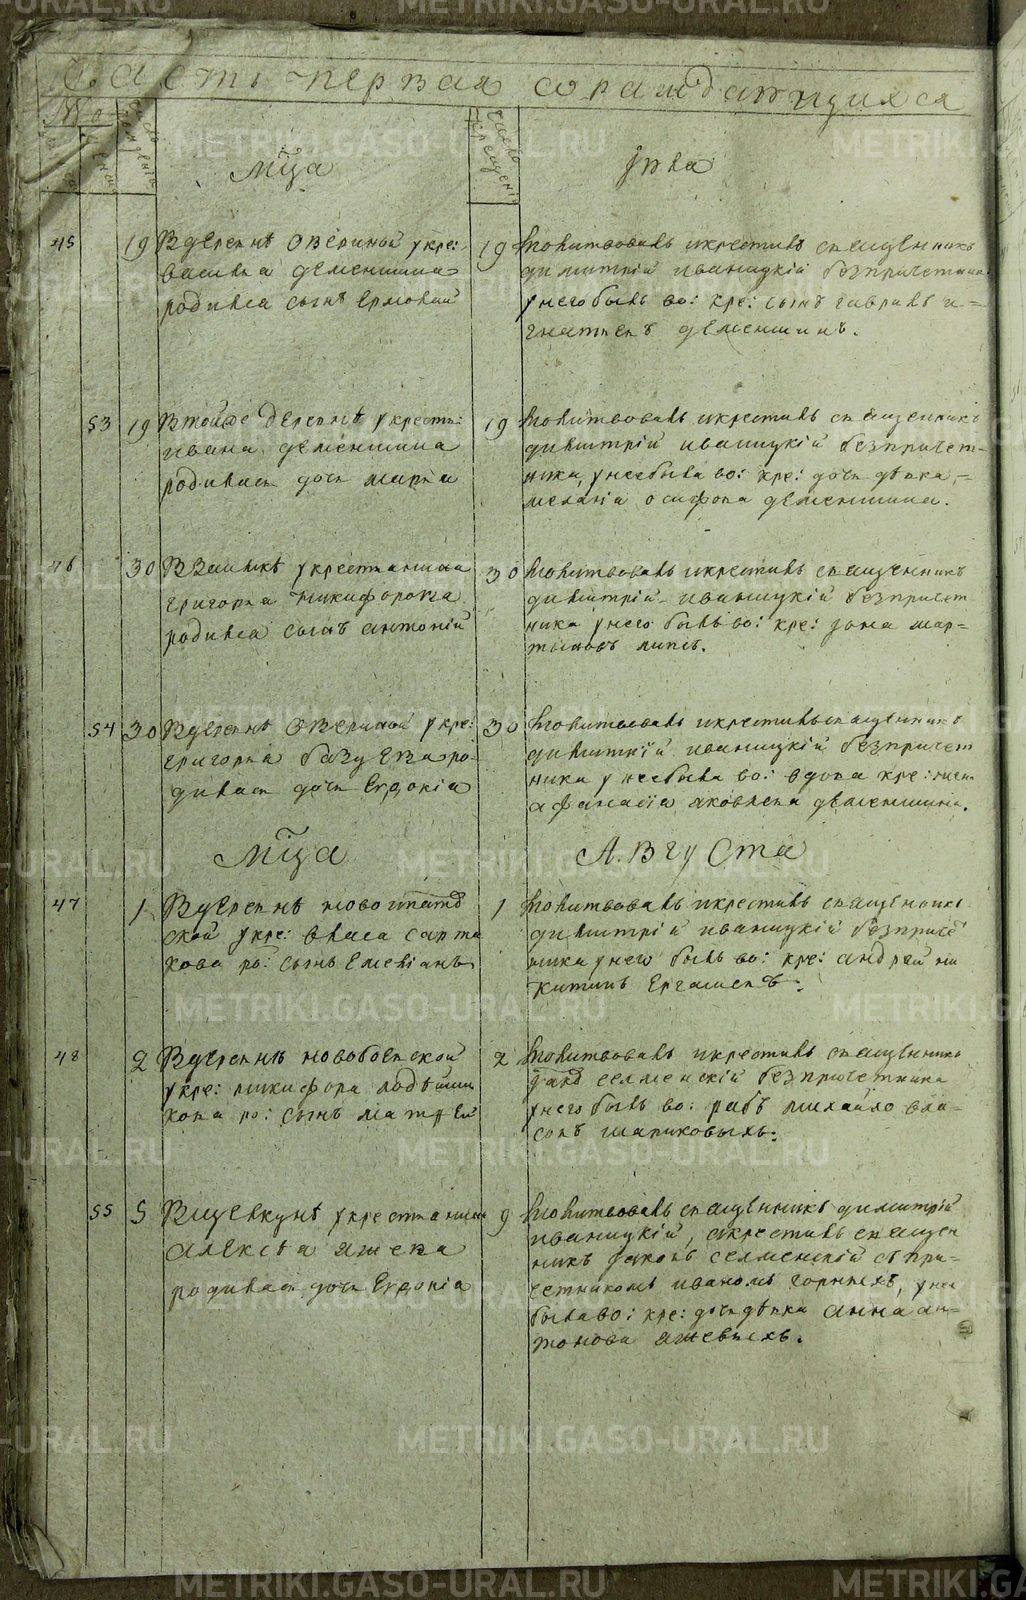 Часть первая о раждающихся
Мца Iюля
45 19 Вдеревнѣ Овериной укре:
василиа деменшина
родился сынъ Ермолай
19 молитвовалъ икрестилъ священникъ
димитрiй иваницкiй безпричетника
унего былъ во: кре: сынъ гаврилъ и=
гнатьевъ деменшинъ.
53 19 Втойже деревнѣ укресть:
ивана деменшина
родилась дочь марiа
19 молитвовалъ икрестилъ священникъ
димитрiй иваницкiй безпричет=
ника, унеебыла во: кре: дочь дѣвка,=
меланiа осифова деменшина.
46 30 укрестьянина
григорiа никифорова
родился сынъ антонiй
30 молитвовалъ икрестилъ священникъ
димитрiй иваницкiй безпричет
ника унего былъ во: кре: Iона мар=
тыновъ
54 30 Вдеревнѣ Овериной укре:
григорiа ро=
дилась дочь Евдокiа
30 молитвовалъ икрестилъ священникъ
димитрiй иваницкiй безпричет
ника унеебыла во: вдова кре:
афанасiа яковлева деменшина.
Мца Августа
47 1 Вдеревнѣ
ской укре: власа сарта
кова ро: сынъ Емелiанъ
1 молитвовалъ икрестилъ священникъ
димитрiй иваницкiй безприче
ника унего былъ во: кре: андрей ни
китинъ
48 2 Вдеревнѣ новобоевской
укре: никифора
кова ро: сынъ матвей
2 молитвовалъ икрестилъ священникъ
Iаковъ селменскiй безпричетника
унего былъ во: рабъ михайло вла=
совъ шариковыхъ.
55 5 Вщелкунѣ укрестьянина
Алексѣа ажева
родилась дочь Евдокiа
9 молитвовалъ священникъ димитрiй
иваницкiй, акрестилъ священ
никъ Iаковъ селменскiй съ при=
четникомъ иваномъ горныхъ, унее
былаво: кре: дочьдѣвка анна ан=
тонова ажевыхъ.
METRIKI.GASO-URAL.RU